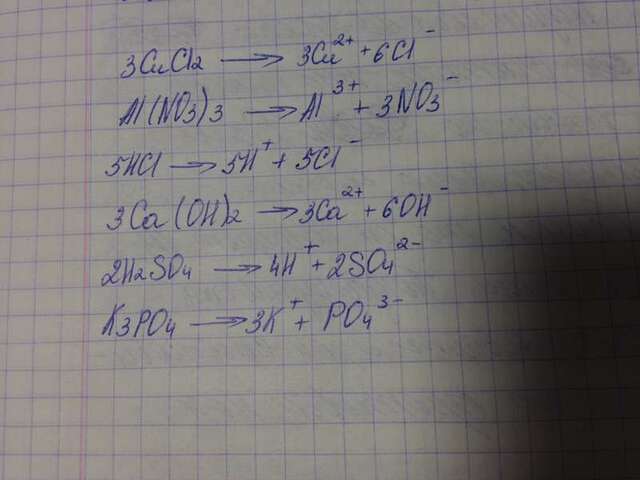 3CuCl2 → 3Cu²⁺ + 6Cl⁻
Al(NO3)3 → Al³⁺ + 3NO3⁻
5HCl → 5H⁺ + 5Cl⁻
3Ca(OH)2 → 3Ca²⁺ + 6OH⁻
2H2SO4 → 4H⁺ + 2SO4²⁻
K3PO4 → 3K⁺ + PO4³⁻